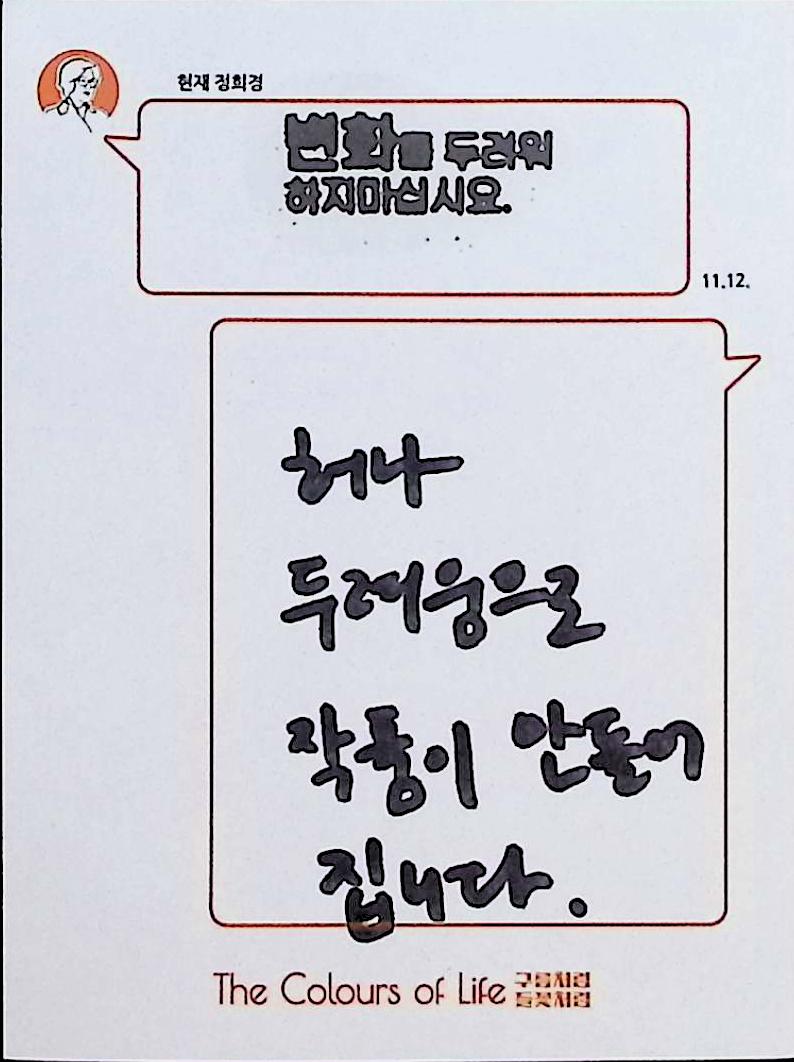 현재 정희경
변화를 두려워
하지마십시요.
11.12.
허나
두려움으로
작품이 만들어
집니다.
The Colours of Life 구름처럼
들꽃처럼